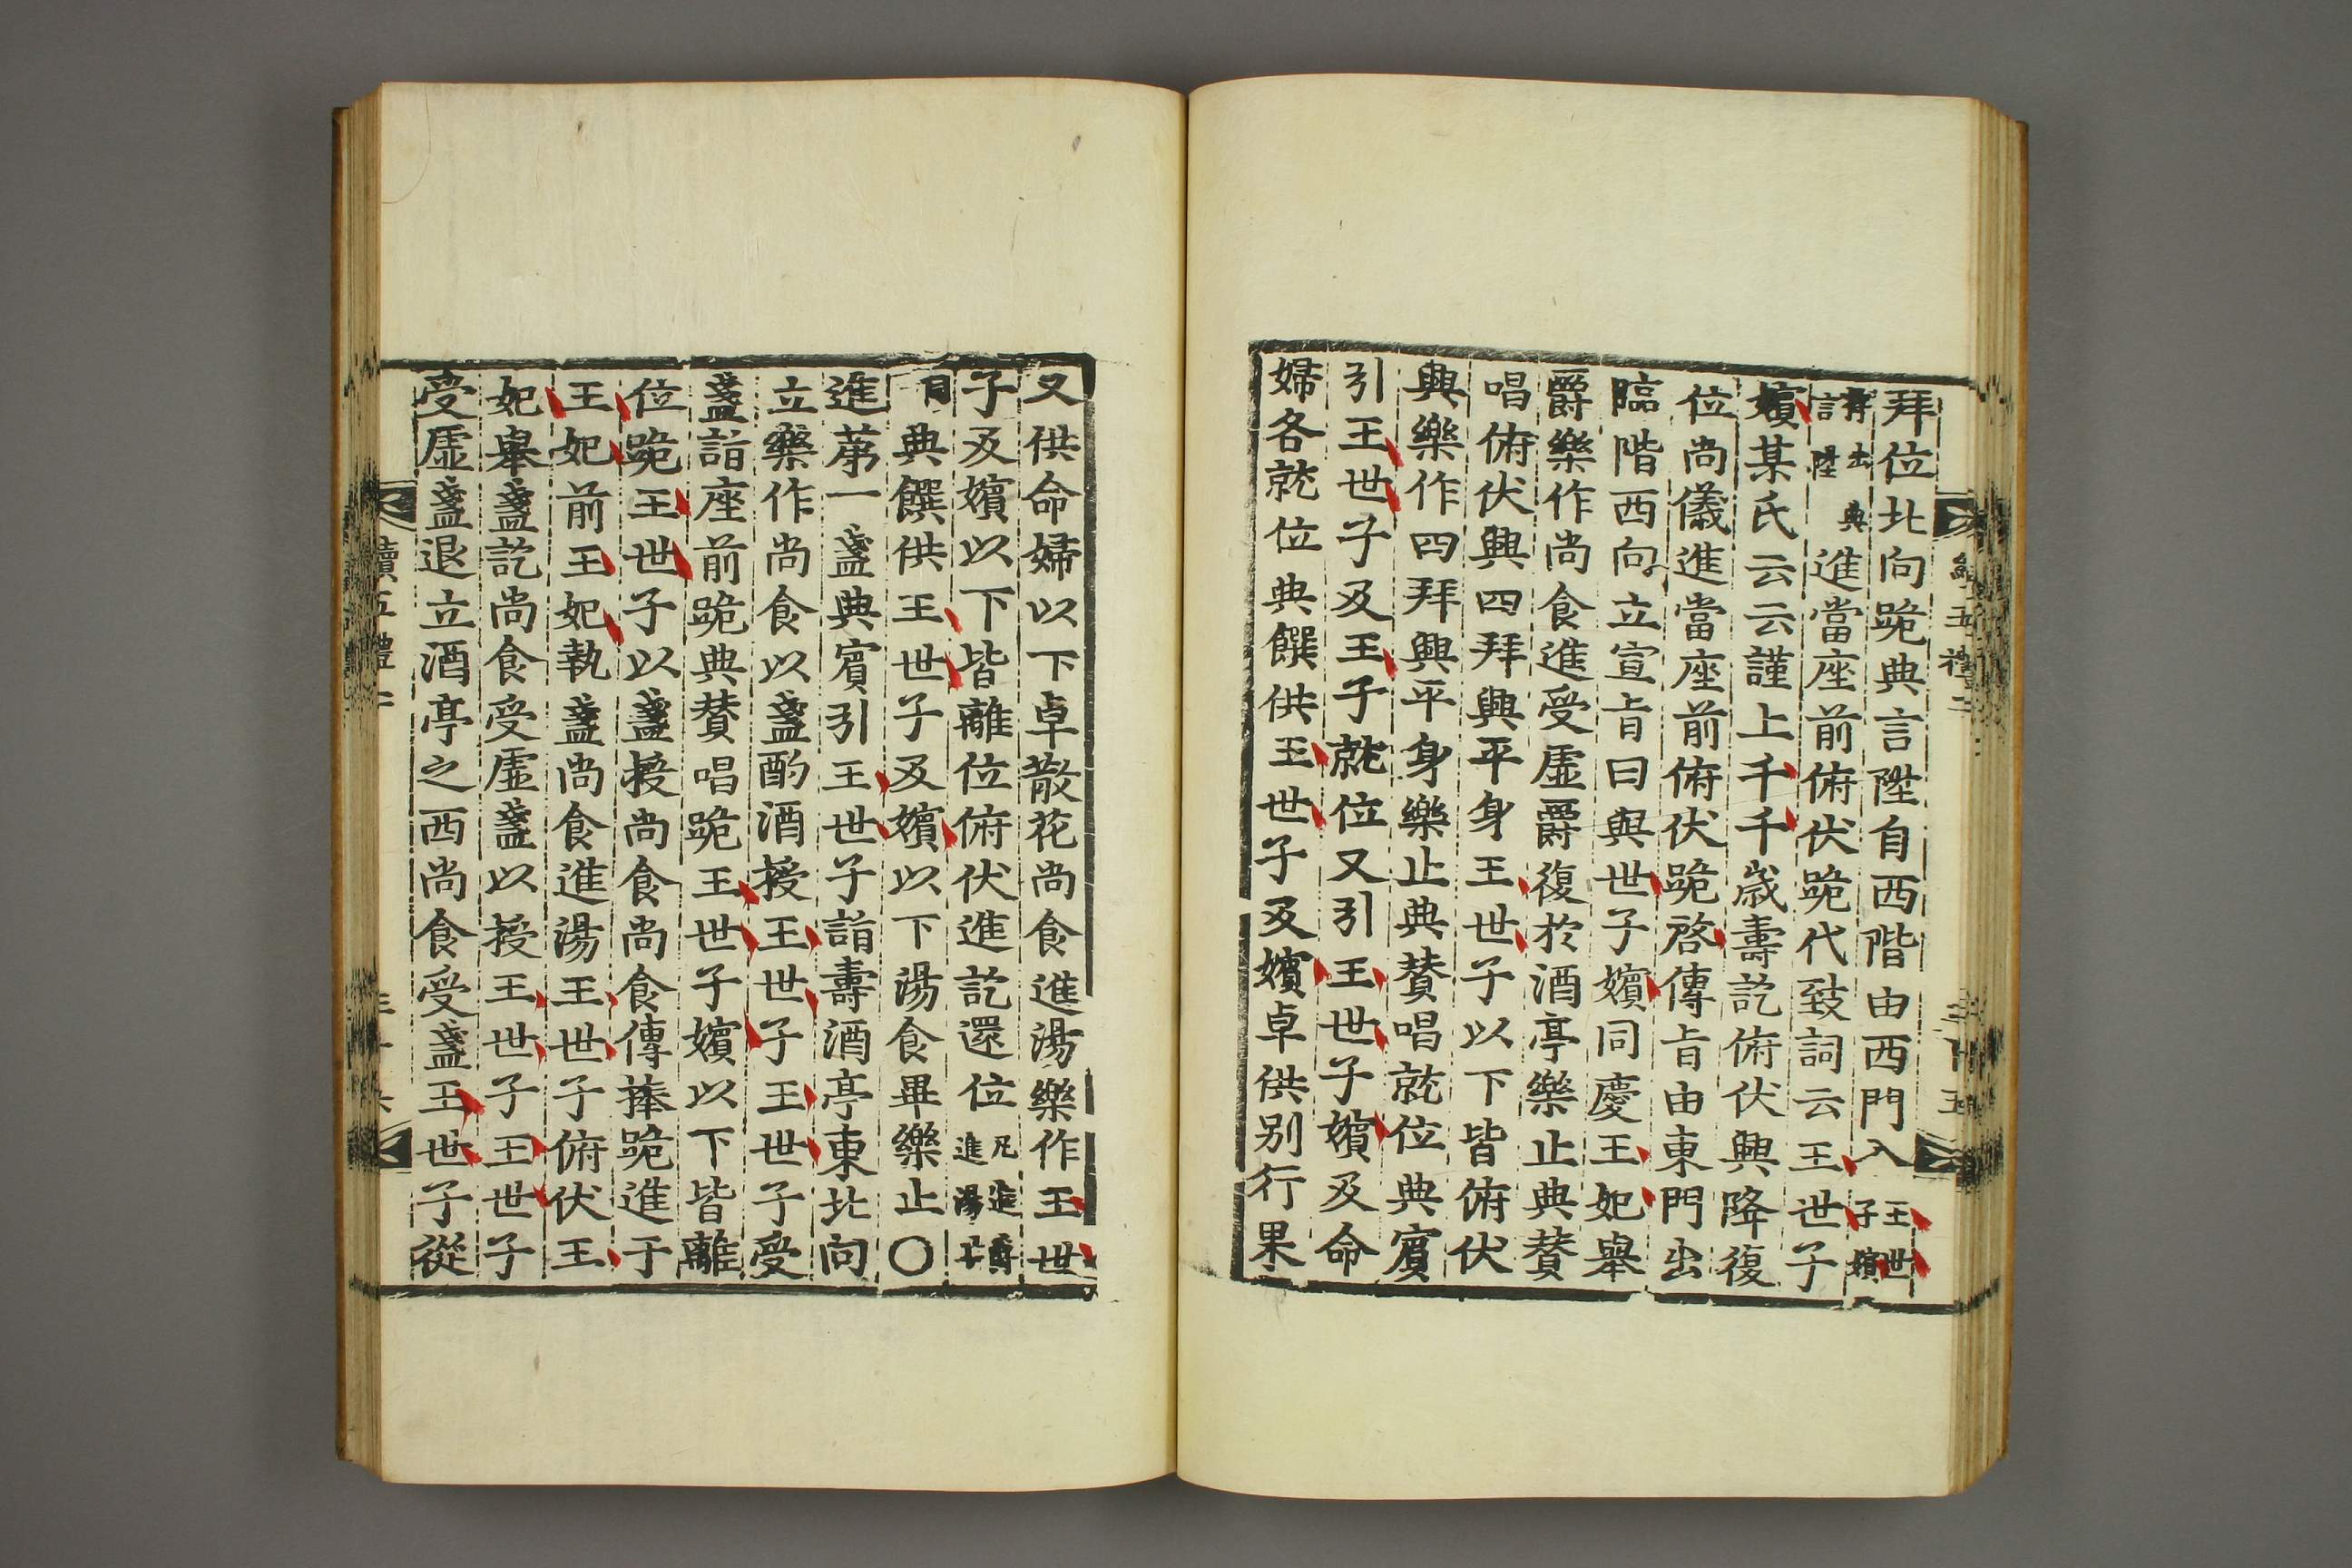 拜位北向跪典言陞自西階由西門入王世子嬪
言陞 典進當座前俯伏跪代致詞云王世子
嬪某氏云云謹上千千歲壽訖俯伏興降復
位尚儀進當座前俯伏跪啓傳旨由東門出
臨階西向立宣旨曰與世子嬪同慶王妃擧
爵樂作尚食進受虛爵復於酒亭樂止典贊
唱俯伏興四拜興平身王世子以下皆俯伏
興樂作四拜興平身樂止典贊唱就位典賓
引王世子及王子就位又引王世子嬪及命
婦各就位典饌供王世子及嬪卓供別行果
又供命婦以下卓散花尚食進湯樂作王世
子及嬪以下皆離位俯伏進訖還位凡進爵進湯
同典饌供王世子及嬪以下湯食畢樂止○
進第一盞典賓引王世子詣壽酒亭東北向
立樂作尚食以盞酌酒授王世子王世子受
盞詣座前跪典贊唱跪王世子嬪以下皆離
位跪王世子以盞授尚食尚食傳捧跪進于
王妃前王妃執盞尚食進湯王世子俯伏王
妃擧盞訖尚食受虛盞以授王世子王世子
受虛盞退立酒亭之西尚食受盞王世子從